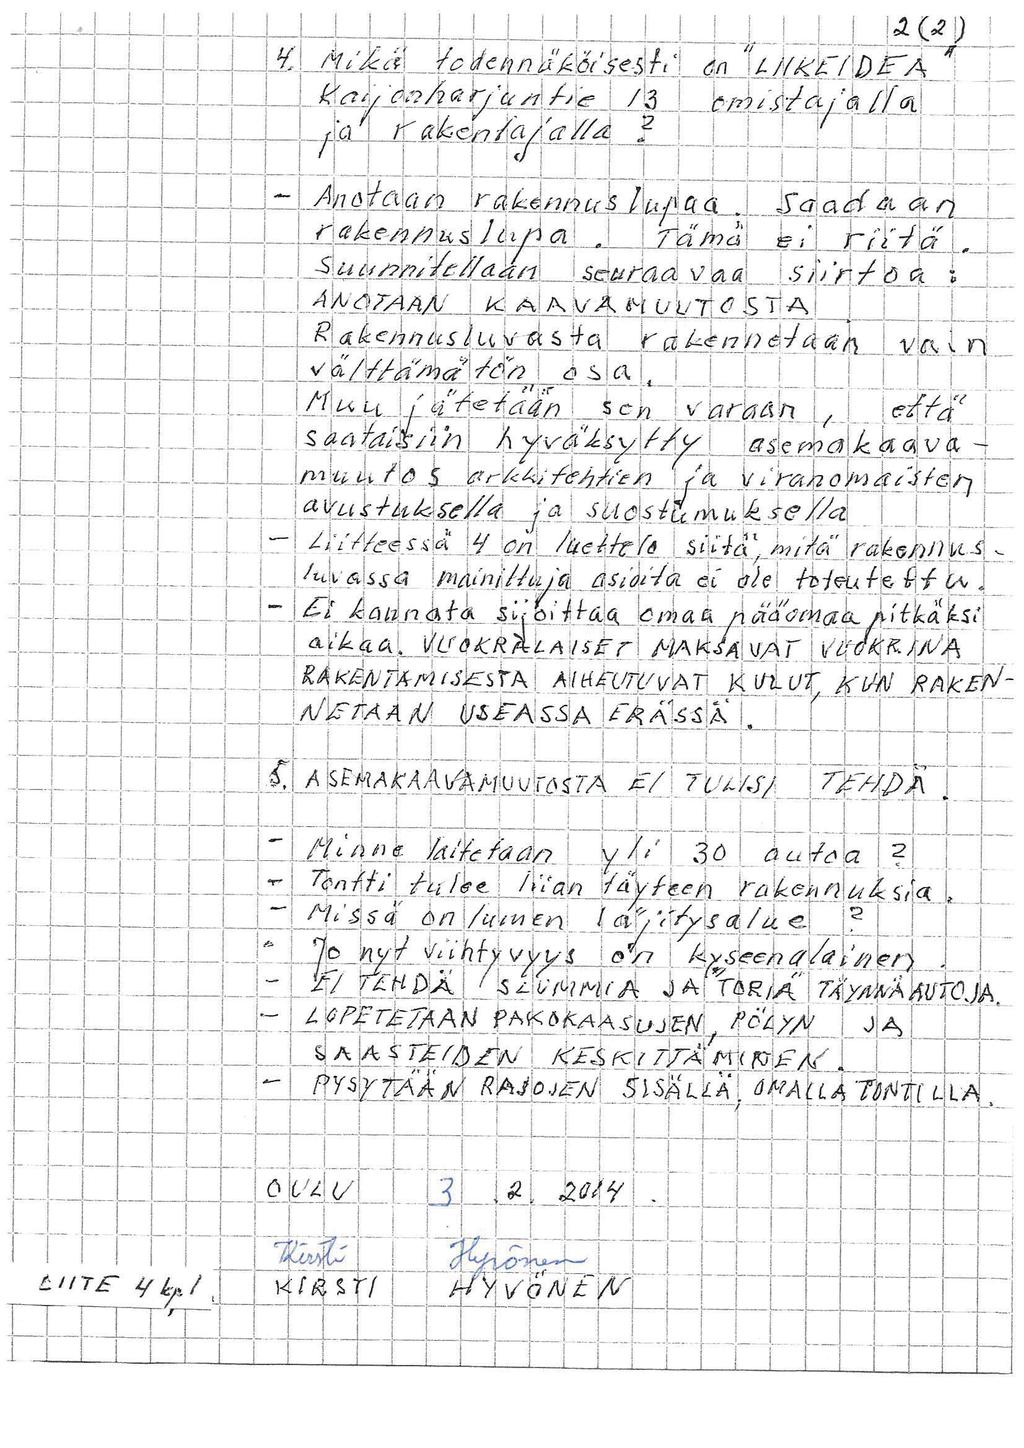 2 (2)
4. Mikä todennäköisesti on "LIIKEIDEA"
Kaijonharjuntie 13 omistajalla
ja rakentajalla ?
- Anotaan rakennuslupaa. Saadaan
rakennuslupa. Tämä ei riitä.
Suunnitellaan seuraavaa siirtoa :
ANOTAAN KAAVAMUUTOSTA.
Rakennusluvasta rakennetaan vain
välttämätön osa.
Muu jätetään sen varaan, että
saataisiin hyväksytty asemakaava-
muutos arkkitehtien ja viranomaisten
avustuksella ja suostumuksella
- Liitteessä 4 on luettelo siitä, mitä rakennus-
luvassa mainittuja asioita ei ole toteutettu.
- Ei kannata sijoittaa omaa pääomaa pitkäksi
aikaa. VUOKRALAISET MAKSAVAT VUOKRINA
RAKENTAMISESTA AIHEUTUVAT KULUT, KUN RAKEN-
NETAAN USEASSA ERÄSSÄ.
5. ASEMAKAAVAMUUTOSTA EI TULISI TEHDÄ.
- Minne laitetaan yli 30 autoa ?
- Tontti tulee liian täyteen rakennuksia.
- Missä on lumen läjitysalue ?
- Jo nyt viihtyvyys on kyseenalainen.
- EI TEHDÄ SLUMMIA JA "TORIA" TÄYNNÄ AUTOJA.
- LOPETETAAN PAKOKAASUJEN, PÖLYN JA
SAASTEIDEN KESKITTÄMINEN.
- PYSYTÄÄN RAJOJEN SISÄLLÄ, OMALLA TONTILLA.
OULU 3.2.2014.
Kirsti Hyvönen
KIRSTI HYVÖNEN
LIITE 4 kpl.